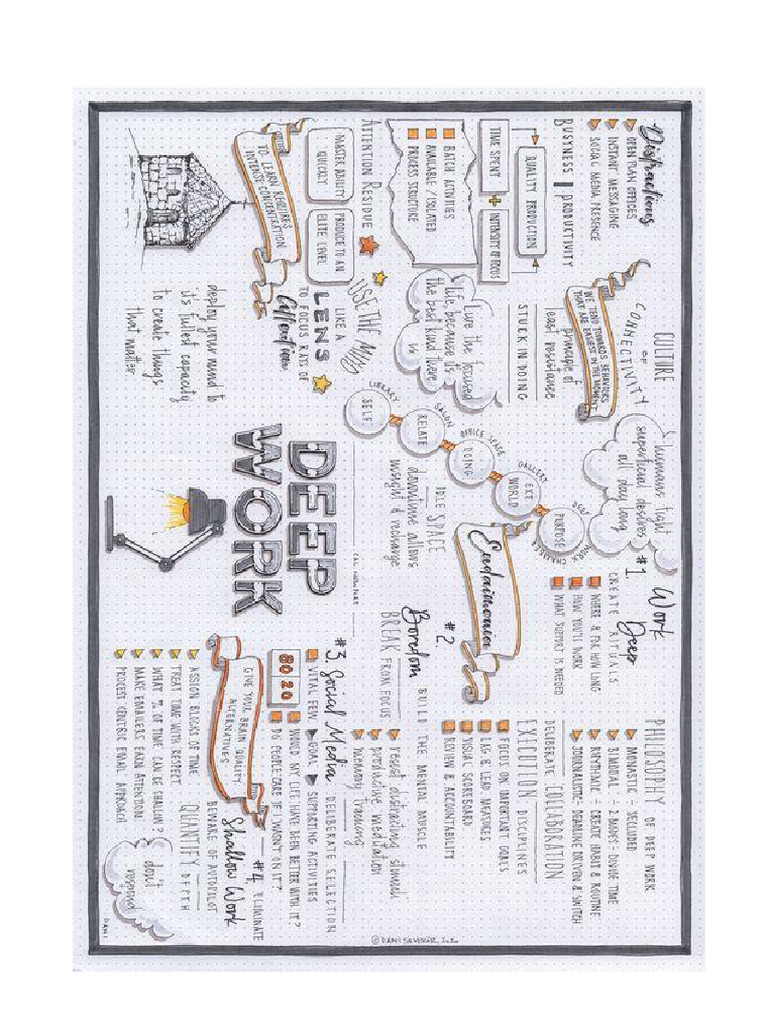 Distractions
OPEN PLAN OFFICES
INSTANT MESSAGING
SOCIAL MEDIA PRESENCE
BUSYNESS PRODUCTIVITY
QUALITY PRODUCTION
TIME SPENT + INTENSITY OF FOCUS
BATCH ACTIVITIES
AVAILABLE / ISOLATED
PROCESS STRUCTURE
ATTENTION RESIDUE
MASTER ABILITY
QUICKLY
PRODUCE TO AN
ELITE LEVEL
TO LEARN REQUIRES
INTENSE CONCENTRATION
CULTURE
OF
CONNECTIVITY
WE TEND TOWARDS BEHAVIORS
THAT ARE EASIEST IN THE MOMENT
principle of
least resistance
STUCK IN DOING
live the focused
life, because it's
the best kind there
is
USE THE MIND
LIKE A
LENS
TO FOCUS RAYS OF
Attention
deploy your mind to
it's fullest capacity
to create things
that matter
"humans fight
superficial desires
all day long
LIBRARY
SELF
SALON
RELATE
OFFICE SPACE
DOING
GALLERY
EXT
WORLD
DEEP WORK CHAMBER
PURPOSE
Eudaimonia
IDLE SPACE
downtime allows
insight & recharge
DEEP
WORK
CAL NEWPORT
#1. Work
Deep
CREATE RITUALS
WHERE & FOR HOW LONG
HOW YOU'LL WORK
WHAT SUPPORT IS NEEDED
PHILOSOPHY OF DEEP WORK
MONASTIC - SECLUDED
BIMODAL - 2 MODES - DIVIDE TIME
RHYTHMIC - CREATE HABIT & ROUTINE
JOURNALISTIC - DEADLINE DRIVEN & SWITCH
DELIBERATE COLLABORATION
EXECUTION DISCIPLINES
FOCUS ON IMPORTANT GOALS
LAG & LEAD MEASURES
VISUAL SCOREBOARD
REVIEW & ACCOUNTABILITY
#2.
Boredom
BUILD THE MENTAL MUSCLE
BREAK FROM FOCUS
resist distracting stimuli
productive meditation
memory training
#3. Social Media
DELIBERATE SELECTION
VITAL FEW GOAL SUPPORTING ACTIVITIES
80 20
WOULD MY LIFE HAVE BEEN BETTER WITH IT?
DO PEOPLE CARE IF I WASN'T ON IT?
GIVE YOUR BRAIN QUALITY
ALTERNATIVES
#4. ELIMINATE
Shallow Work
BEWARE OF AUTOPILOT
QUANTIFY DEPTH
ASSIGN BLOCKS OF TIME
TREAT TIME WITH RESPECT
WHAT % OF TIME CAN BE SHALLOW?
MAKE EMAILERS EARN ATTENTION
PROCESS CENTRIC EMAIL APPROACH
don't
respond
DANI